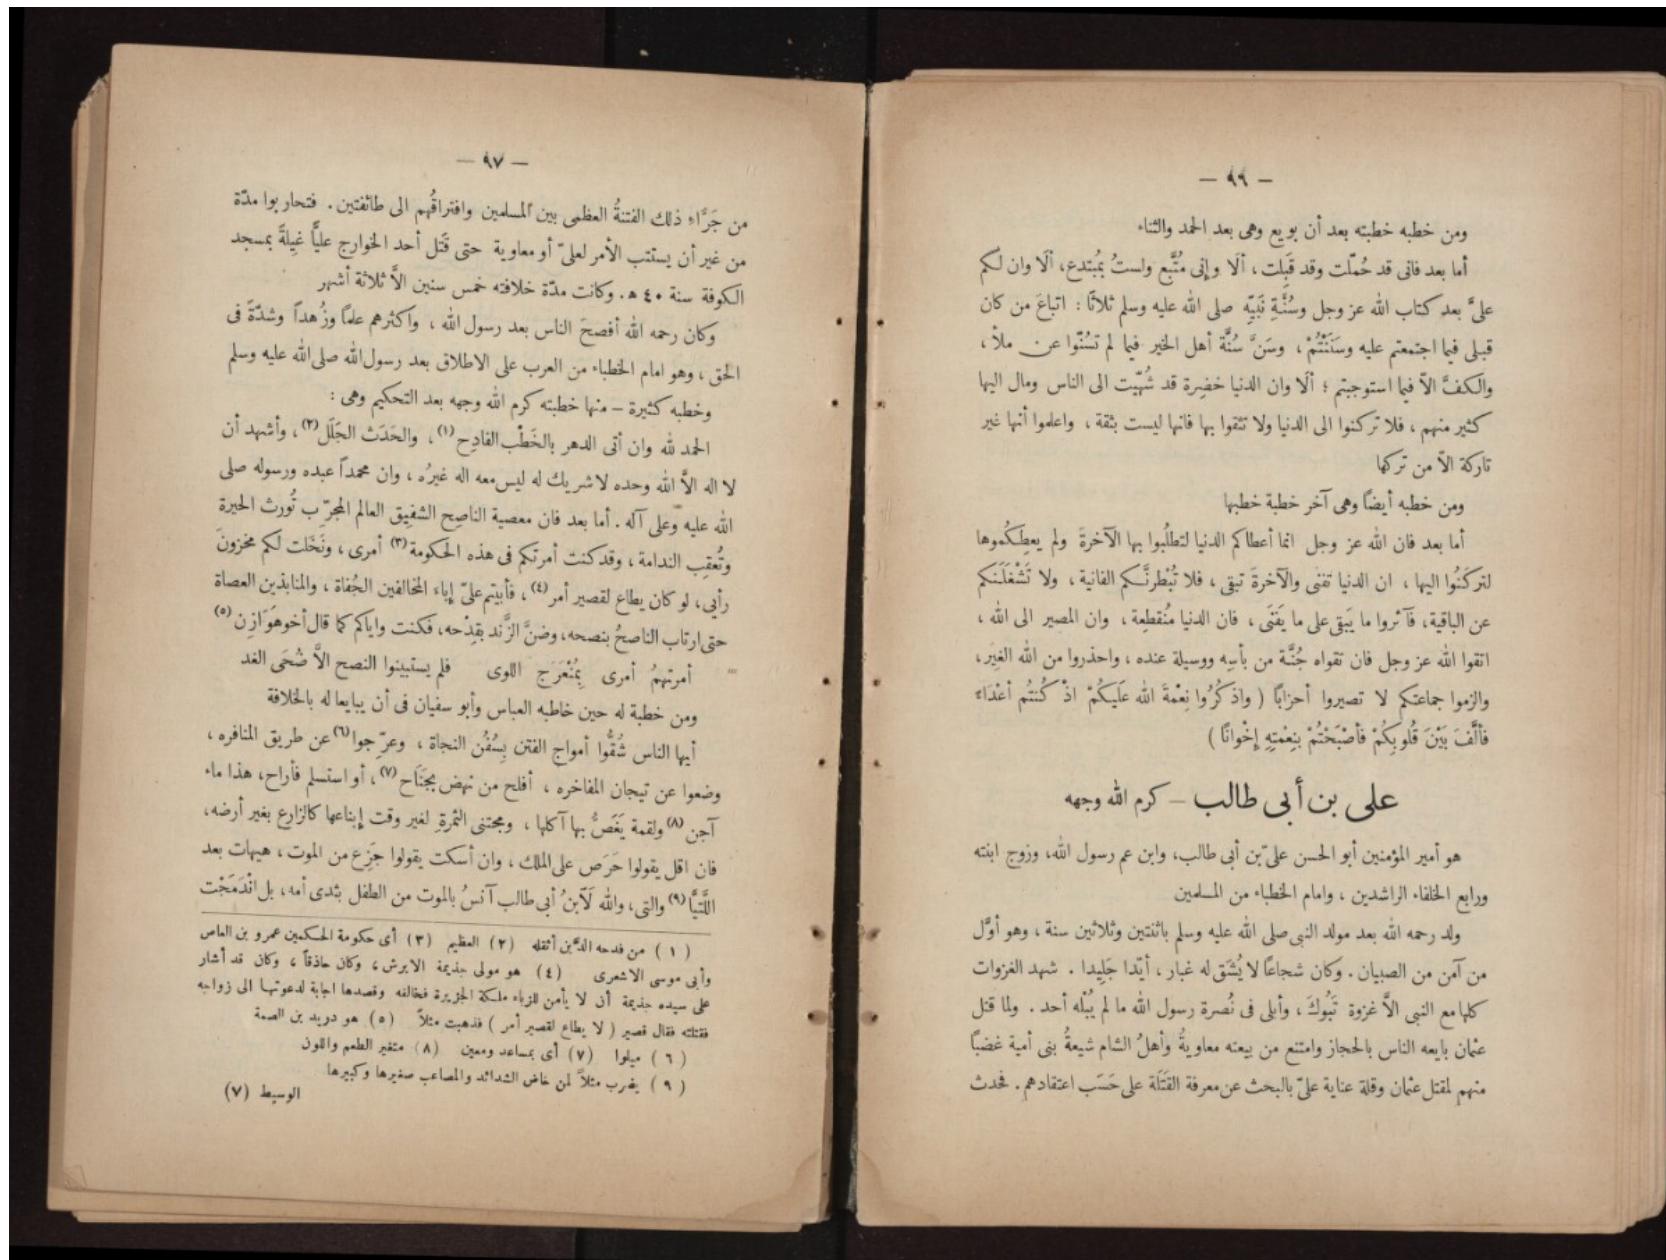 — ٩٦ —
ومن خطبه خطبته بعد أن بويع وهى بعد الحمد والثناء
أما بعد فانى قد حُمّلت وقد قَبِلت، ألَا وإنى مُتَّبع ولستُ بمُبتدع، ألَا وان لكم
علىَّ بعد كتاب الله عز وجل وسُنَّةِ نَبيّه صلى الله عليه وسلم ثلاثًا : اتباعَ من كان
قبلى فيما اجتمعتم عليه وسَنَنْتُمْ ، وسَنَّ سُنَّة أهل الخير فيما لم تسُنّوا عن ملأ ،
والكفَّ الاّ فيما استوجبتم ؛ ألَا وان الدنيا خضِرة قد شُهّيت الى الناس ومال اليها
كثير منهم ، فلا تركنوا الى الدنيا ولا تثقوا بها فانها ليست بثقة ، واعلموا أنها غير
تاركة الاّ من تركها
ومن خطبه أيضًا وهى آخر خطبة خطبها
أما بعد فان الله عز وجل انما أعطاكم الدنيا لتطلُبوا بها الآخرةَ ولم يعطِكُموها
لتركَنُوا اليها ، ان الدنيا تفنى والآخرةَ تبقى ، فلا تُبْطرنَّكم الفانية ، ولا تَشْغَلَنكم
عن الباقية، فآثروا ما يَبقى على ما يَفنَى ، فان الدنيا مُنقطِعة ، وان المصير الى الله ،
اتقوا الله عز وجل فان تقواه جُنَّة من بأسِه ووسيلة عنده ، واحذروا من الله الغِيَر ،
والزموا جماعتكم لا تصيروا أحزابًا ( واذكُرُوا نِعْمةَ الله عَلَيكُمْ اذْ كُنتُم أعْدَاءً
فألَّفَ بَيْنَ قُلُوبِكُمْ فأصْبَحْتُمْ بنِعْمتِهِ إخْوانًا )
على بن أبى طالب — كرم الله وجهه
هو أمير المؤمنين أبو الحسن علىّ بن أبى طالب، وابن عم رسول الله، وزوج ابنته
ورابع الخلفاء الراشدين ، وامام الخطباء من المسلمين
ولد رحمه الله بعد مولد النبى صلى الله عليه وسلم باثنتين وثلاثين سنة ، وهو أوَّل
من آمن من الصبيان . وكان شجاعًا لا يُشَق له غبار ، أيّدا جَلِيدا . شهد الغزوات
كلها مع النبى الاَّ غزوة تَبُوكَ ، وأبلى فى نُصرة رسول الله ما لم يُبْله أحد . ولما قتل
عثمان بايعه الناس بالحجاز وامتنع من بيعته معاويةُ وأهلُ الشام شيعةُ بنى أمية غضبًا
منهم لمقتل عثمان وقلة عناية علىّ بالبحث عن معرفة القتَلَة على حَسَب اعتقادهم . فحدث
— ٩٧ —
من جَرَّاءِ ذلك الفتنةُ العظمى بين المسلمين وافتراقُهم الى طائفتين . فتحاربوا مدّة
من غير أن يستتب الأمر لعلىّ أو معاوية حتى قَتل أحد الخوارج عليًّا غِيلةً بمسجد
الكوفة سنة ٤٠ ه. وكانت مدّة خلافته خمس سنين الاَّ ثلاثة أشهر
وكان رحمه الله أفصحَ الناس بعد رسول الله ، وأكثرهم علمًا وزُهداً وشدّةً فى
الحق ، وهو امام الخطباء من العرب على الاطلاق بعد رسول الله صلى الله عليه وسلم
وخطبه كثيرة — منها خطبته كرم الله وجهه بعد التحكيم وهى :
الحمد لله وان أتى الدهر بالخَطْب الفادِح (١) ، والحَدَث الجَلَل (٢) ، وأشهد أن
لا اله الاَّ الله وحده لا شريك له ليس معه اله غيرُه ، وان محمداً عبده ورسوله صلى
الله عليه وعلى آله . أما بعد فان معصية الناصِح الشفيق العالم المجرّب تُورث الحيرة
وتُعقِب الندامة ، وقد كنت أمرتكم فى هذه الحكومة (٣) أمرى ، ونَخَلت لكم مخزونَ
رأيى ، لو كان يطاع لقصير أمر (٤) ، فأبيتم علىّ إباء المخالفين الجُفاة ، والمنابذين العصاة
حتى ارتاب الناصحُ بنصحه، وضنَّ الزَّند بقِدْحه، فكنت واياكم كما قال أخو هَوَازِن (٥)
أمرتهمُ أمرى بِمُنْعَرَج اللوى فلم يستبينوا النصح الاَّ ضُحَى الغد
ومن خطبة له حين خاطبه العباس وأبو سفيان فى أن يبايعا له بالخلافة
أيها الناس شُقُّوا أمواج الفتن بِسُفُن النجاة ، وعرّجوا (٦) عن طريق المنافره ،
وضعوا عن تيجان المفاخره ، أفلح من نهض بجَنَاح (٧) ، أو استسلم فأراح، هذا ماء
آجن (٨) ولقمة يَغَصُّ بها آكلها ، ومجتنى الثمرةِ لغير وقت إيناعها كالزارع بغير أرضه،
فان اقل يقولوا حَرَص على الملك ، وان أسكت يقولوا جَزِع من الموت ، هيهات بعد
اللَّتيَّا (٩) والتى، والله لَابنُ أبى طالب آنسُ بالموت من الطفل بثدى أمه، بل انْدَمَجْت
( ١ ) من فدحه الدَّين أثقله ( ٢ ) العظيم ( ٣ ) أى حكومة الحكمين عمرو بن العاص
وأبى موسى الاشعرى ( ٤ ) هو مولى جذيمة الابرش ، وكان حاذقاً ، وكان قد أشار
على سيده جذيمة أن لا يأمن للزباء ملكة الجزيرة فخالفه وقصدها اجابة لدعوتها الى زواجه
فقتلته فقال قصير ( لا يطاع لقصير أمر ) فذهبت مثلاً ( ٥ ) هو دريد بن الصمة
( ٦ ) ميلوا ( ٧ ) أى بمساعد ومعين ( ٨ ) متغير الطعم واللون
( ٩ ) يضرب مثلاً لمن خاض الشدائد والمصاعب صغيرها وكبيرها
الوسيط (٧)